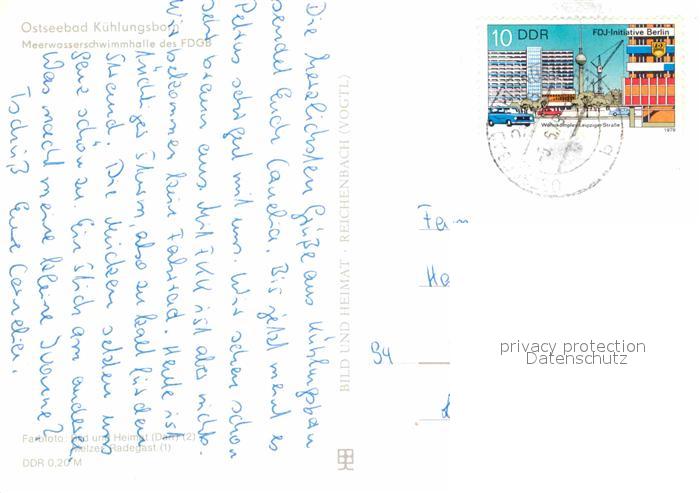 Ostseebad Kühlungsborn
Meerwasserschwimmhalle des FDGB
Die herzlichsten Grüße aus Kühlungsborn
sendet Euch Cornelia. Bis jetzt meint es
Petrus sehr gut mit uns. Wir sehen schon
sehr braun aus. Mit FKK ist aber nichts.
Wir bekommen kein Fahrrad. Heute ist
Sturm, also zu kalt für den
Strand. Die Mücken setzen uns
ganz schön zu. Ein Stich am anderen.
Was macht meine kleine Yvonne?
Tschüß Eure Cornelia.
Farbfoto: Bild und Heimat (Dari) (2)
Helzel, Radegast (1)
DDR 0,20 M
BILD UND HEIMAT · REICHENBACH (VOGTL)
10 DDR
FDJ-Initiative Berlin
Wohnkomplex Leipziger Straße
1979
Fam
Ha
94
privacy protection
Datenschutz